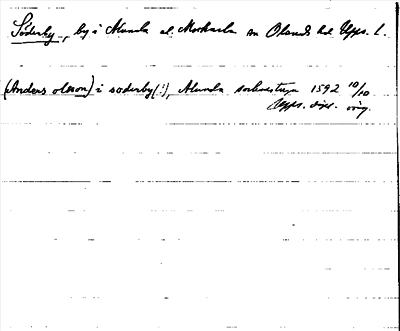 Söderby, by i Alunda el. Morkarla sn Olands hd Upps. l.
(Anders olsson) i söderby(!), Alunda sochnestuga 1592 10/10
Upps. dipl. orig.